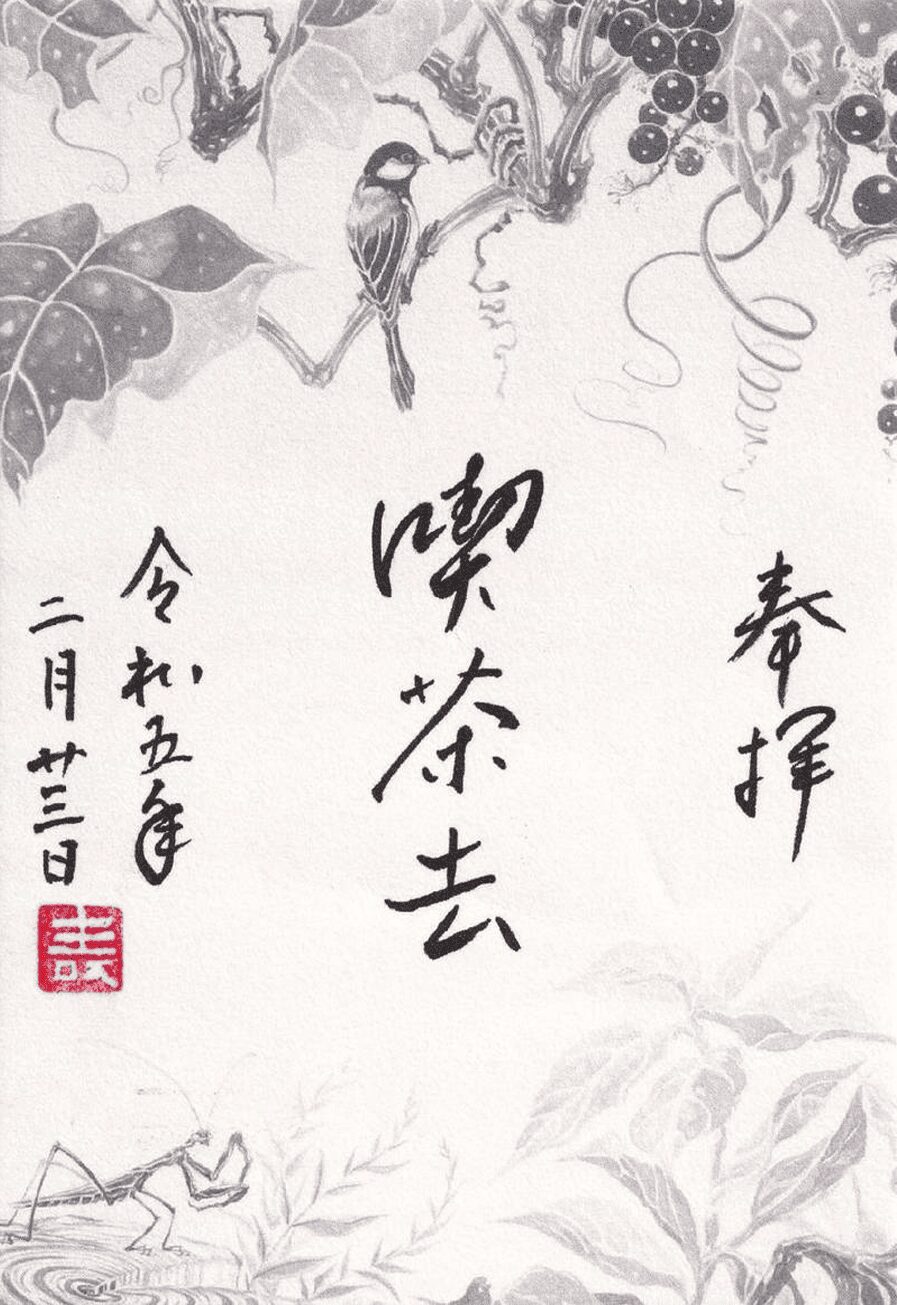 奉拝
喫茶去
令和五年
二月廿三日